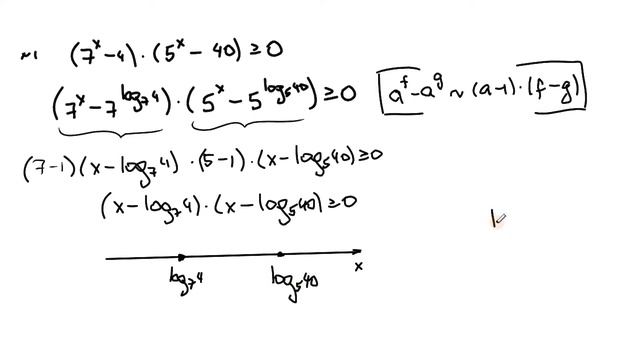 ~1 (7^x - 4) · (5^x - 40) ≥ 0
(7^x - 7^{log_7 4}) · (5^x - 5^{log_5 40}) ≥ 0
a^f - a^g ~ (a-1) · (f-g)
(7-1)(x - log_7 4) · (5-1) · (x - log_5 40) ≥ 0
(x - log_7 4) · (x - log_5 40) ≥ 0
log_7 4 log_5 40 x